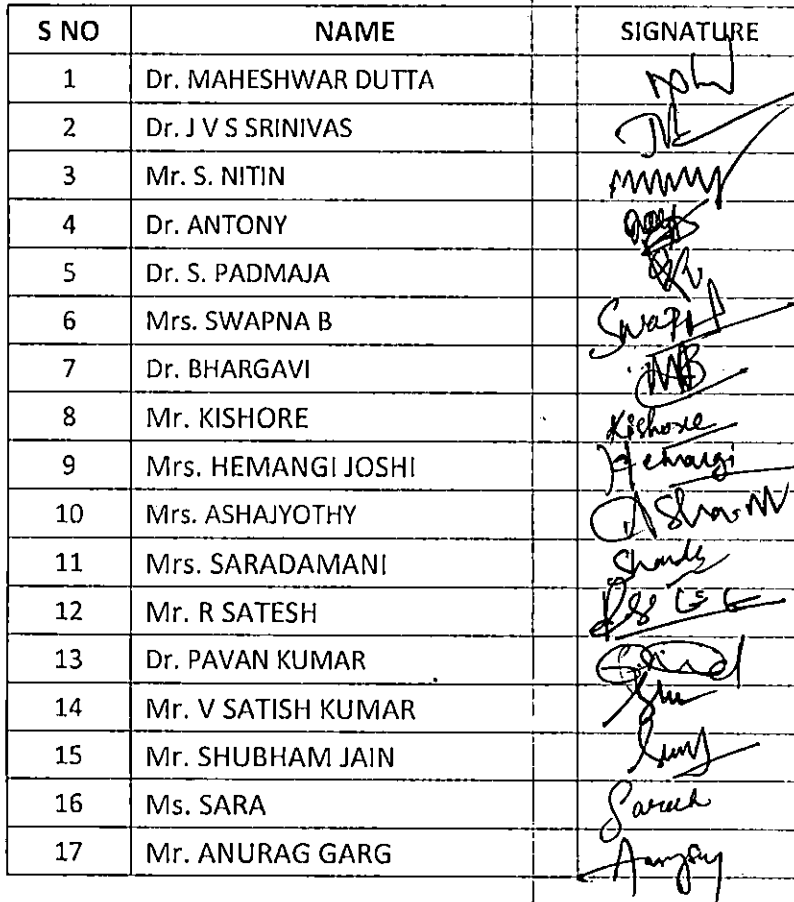 S NO NAME SIGNATURE
1 Dr. MAHESHWAR DUTTA
2 Dr. J V S SRINIVAS
3 Mr. S. NITIN
4 Dr. ANTONY
5 Dr. S. PADMAJA
6 Mrs. SWAPNA B
7 Dr. BHARGAVI
8 Mr. KISHORE Kishore
9 Mrs. HEMANGI JOSHI Hemangi
10 Mrs. ASHAJYOTHY
11 Mrs. SARADAMANI
12 Mr. R SATESH
13 Dr. PAVAN KUMAR
14 Mr. V SATISH KUMAR
15 Mr. SHUBHAM JAIN
16 Ms. SARA
17 Mr. ANURAG GARG